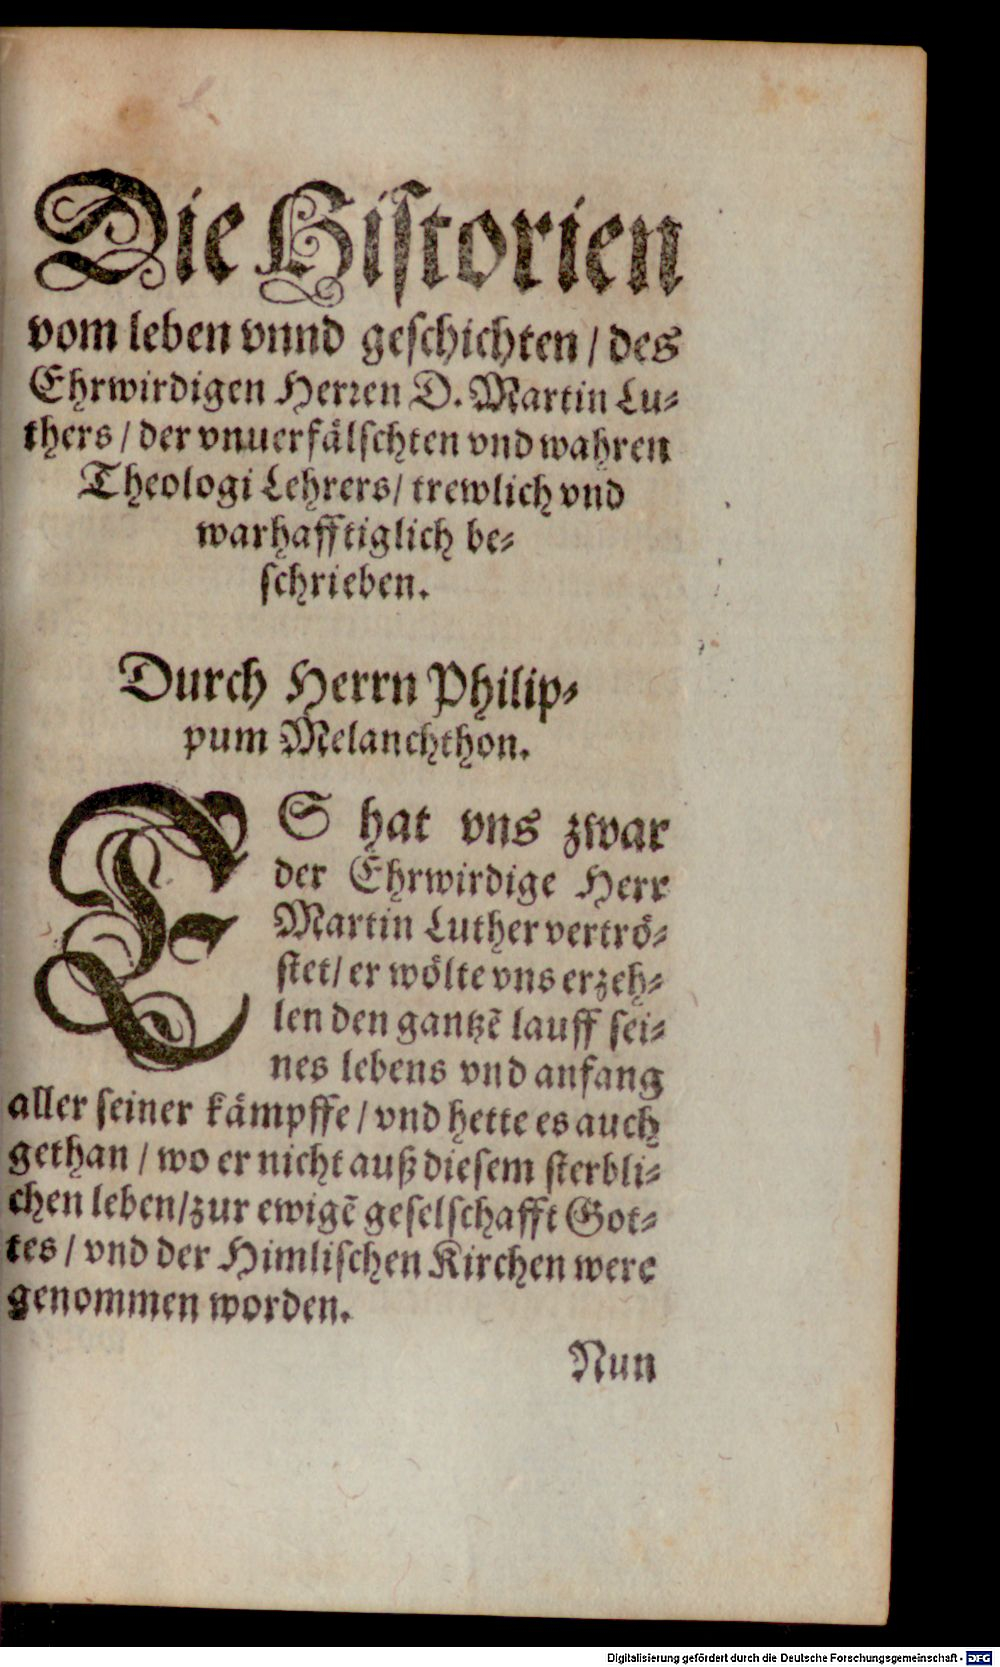 Die Hiſtorien
vom leben vnnd geſchichten / des
Ehrwirdigen Herꝛen D. Martin Lu⸗
thers / der vnuerfälſchten vnd wahren
Theologi Lehrers / trewlich vnd
warhafftiglich be⸗
ſchrieben.
Durch Herrn Philip⸗
pum Melanchthon.
ES hat vns zwar
der Ehrwirdige Herr
Martin Luther vertrö⸗
ſtet / er wölte vns erzeh⸗
len den gantzẽ lauff ſei⸗
nes lebens vnd anfang
aller ſeiner kämpffe / vnd hette es auch
gethan / wo er nicht auß dieſem ſterbli⸗
chen leben / zur ewigẽ geſelſchafft Got⸗
tes / vnd der Himliſchen Kirchen were
genommen worden.
Nun
Digitalisierung gefördert durch die Deutsche Forschungsgemeinschaft - DFG